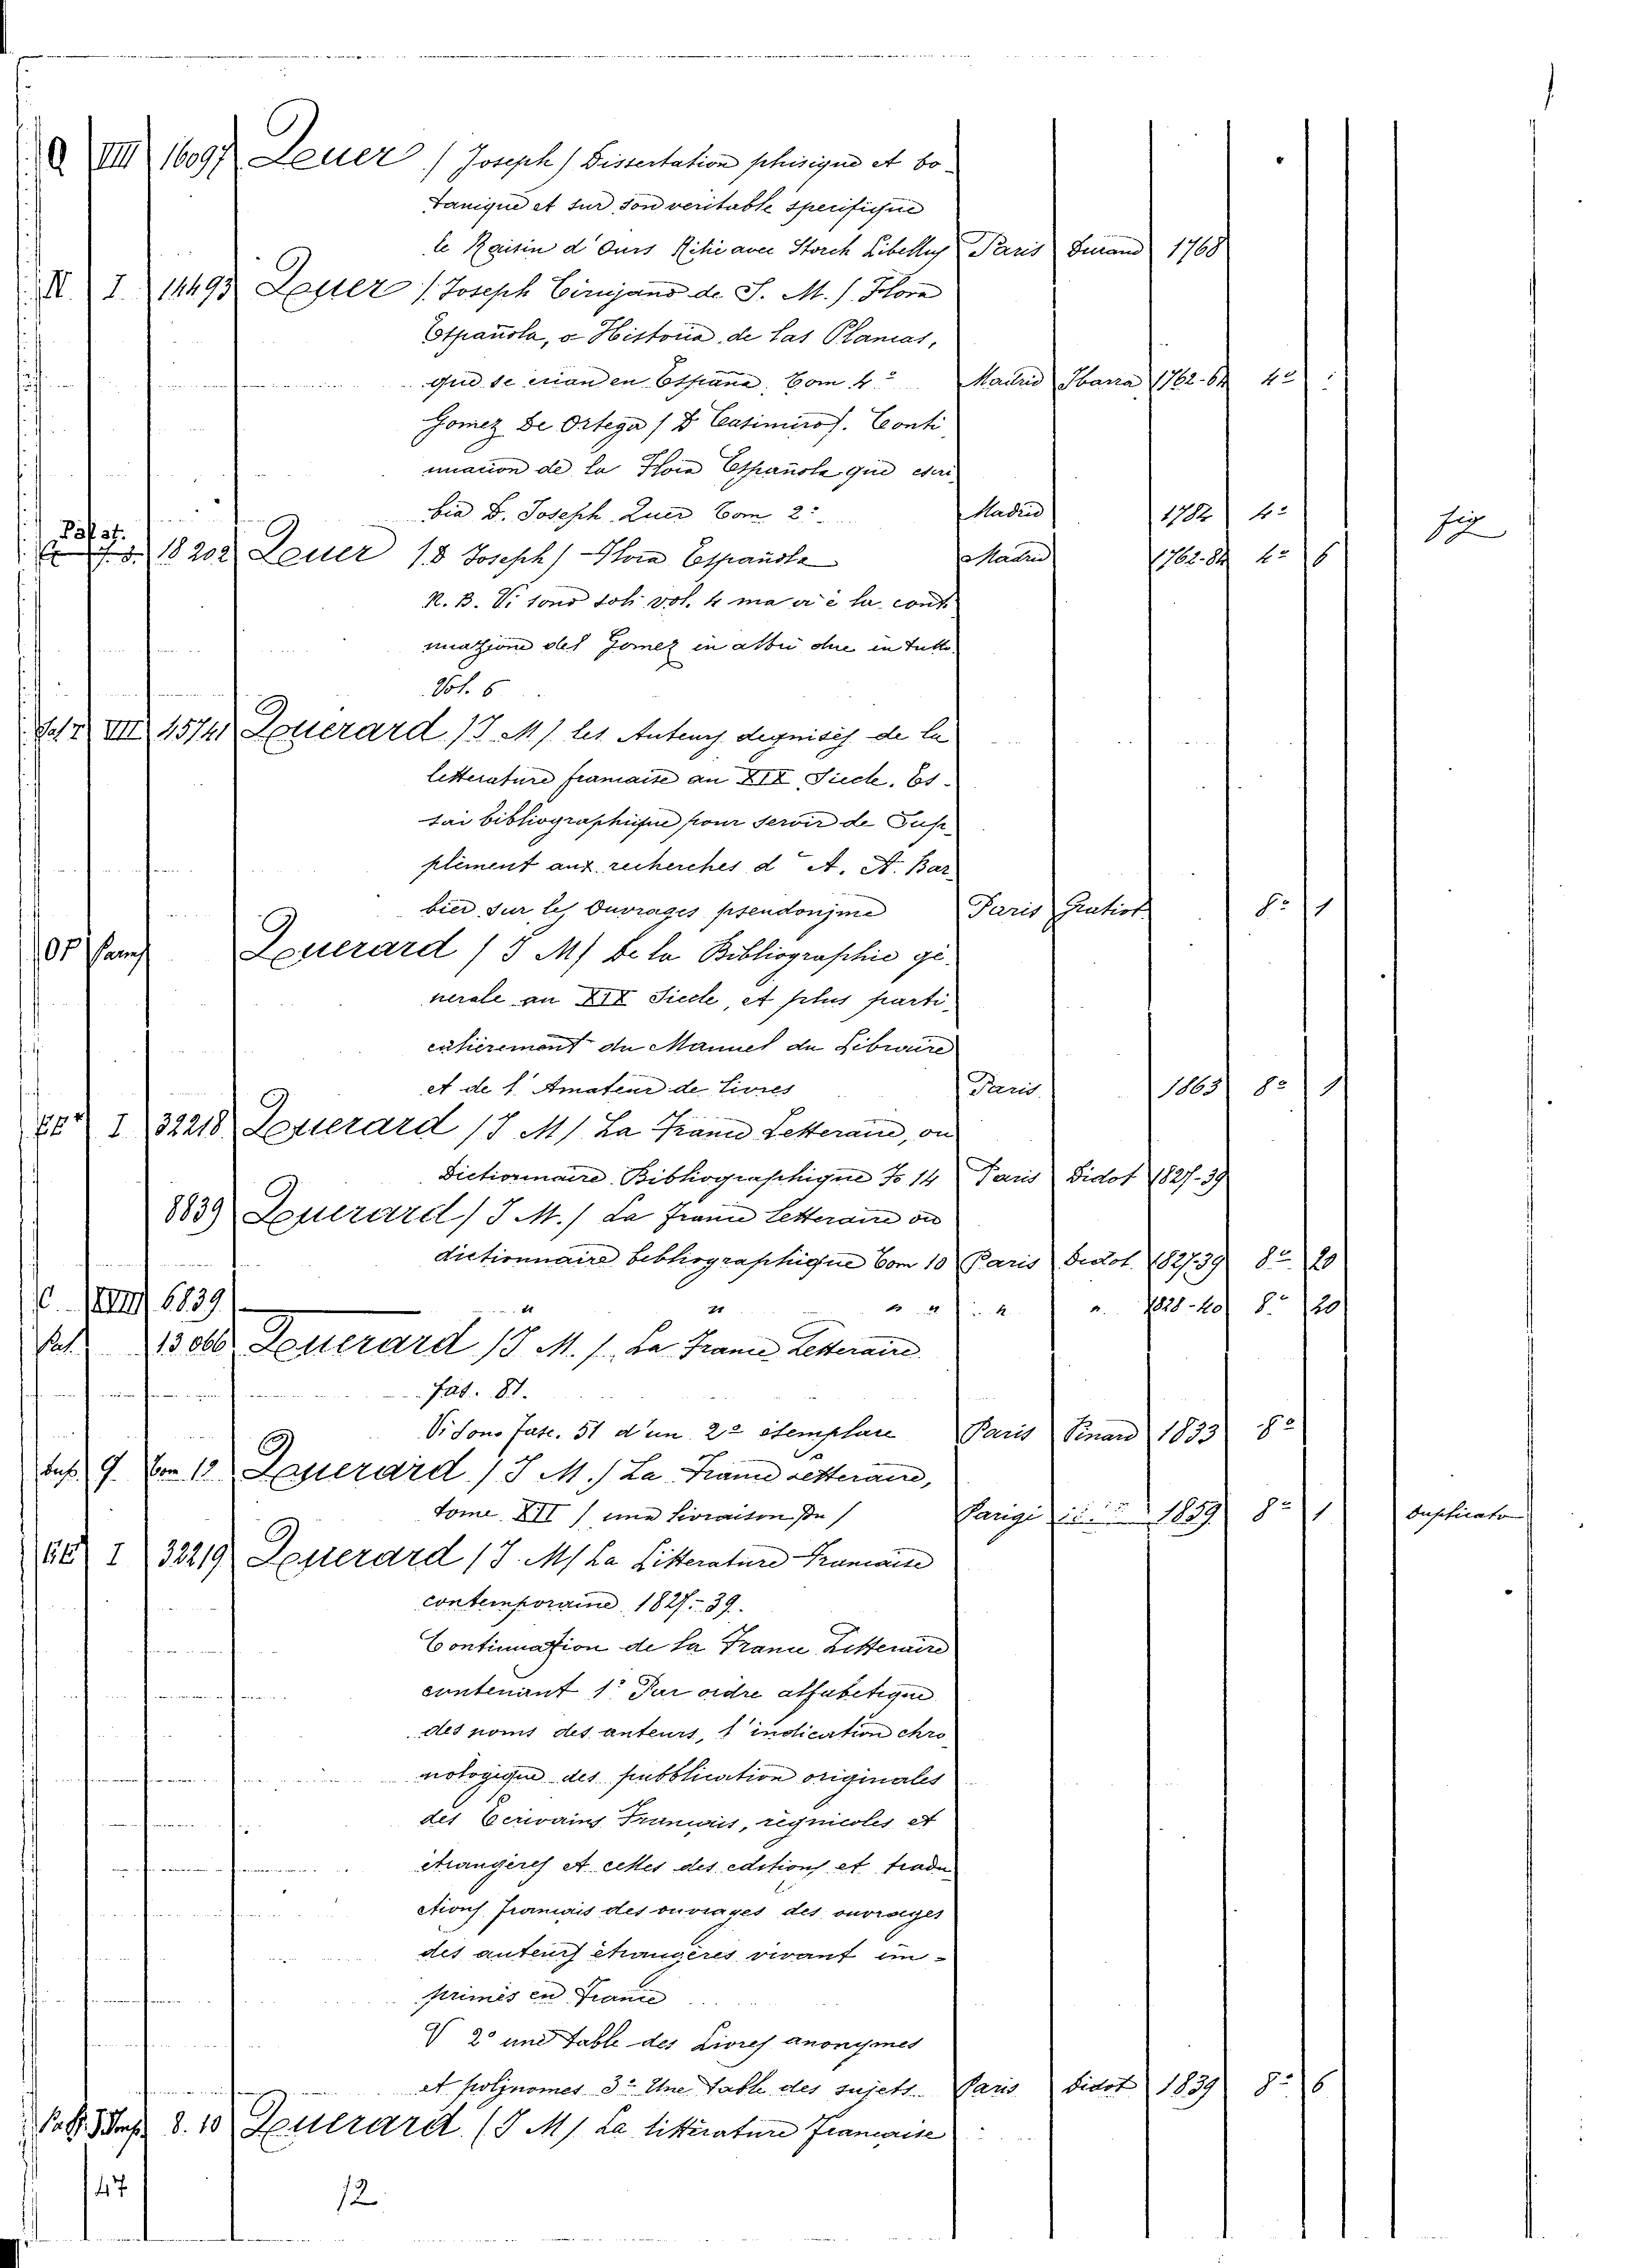 Q VIII 16097 Quer (Joseph) Dissertation phisique et bo-
tanique et sur son veritable sperifique
le Raisin d'Ours Rihi avec Storch Libellus Paris Durand 1768
N. I. 14493 Quer (Joseph Cirujano de S. M.) Flora
Española, o Historia de las Plantas,
que se crian en España. Tom 4º Madrid Ibarra 1762-64 4º
Gomez De Ortega (D Casimiro). Conti
nuacion de la Flora Española que escri
bia D. Joseph Quer Tom 2º Madrid 1784 4º fig
Palat. 18202 Quer (D Joseph) Flora Española Madrid 1762-84 4º 6
N. B. Vi sono soli vol. 4 ma vi è la conti
nuazione del Gomez in altri due in tutto
Vol. 6
VIII 15741 Querard (J M) les Auteurs deguisés de la
letterature francaise au XIX Siecle. Es-
sai bibliographique pour servir de Sup
plément aux recherches d'A. A. Bar
bier sur les Ouvrages pseudonjme Paris Gratiot 8º 1
Querard (J M) De la Bibliographie gé
nerale au XIX Siecle, et plus parti
culierement du Manuel du Libraire
et de l'Amateur de livres Paris 1863 8º 1
I 32218 Querard (J M) La France Letteraire, ou
Dictionnaire Bibliographique To 14 Paris Didot 1827-39
8839 Querard (J M.) La france letteraire ou
dictionnaire bebliographique Tom 10 Paris Didot 1827.39 8º 20
C. XVIII 6839 " " " " " " 1828-40 8º 20
Pal. 13066 Querard (J M.) La France Letteraire.
Fas. 81.
Vi Sono fasc. 51 d'un 2º esemplare Paris Pinard 1833 8º
9. Tom 12 Querard (J M.) La France letteraire,
tome XII (une livraison Iº) Parigi " " 1859 8º 1 duplicato
I 32219 Querard (J. M) La Litterature Francaise
contemporaine 1827-39.
Continuation de la France Litteraire
contenant 1º Par ordre alfabetique
des noms des auteurs, l'indication chro
nologique des pubblication originales
des Ecrivains Francais, regnicoles et
étrangéres et celles des editions et tradu
ctions francais des ouvrages des ouvrages
des auteurs étrangéres vivant im-
primés en France
V 2º une table des Livres anonymes
et poljnomes 3º Une Table des sujets. Paris Didot 1839 8º 6
8. 10 Querard (J M) La littérature Francaise
47
12